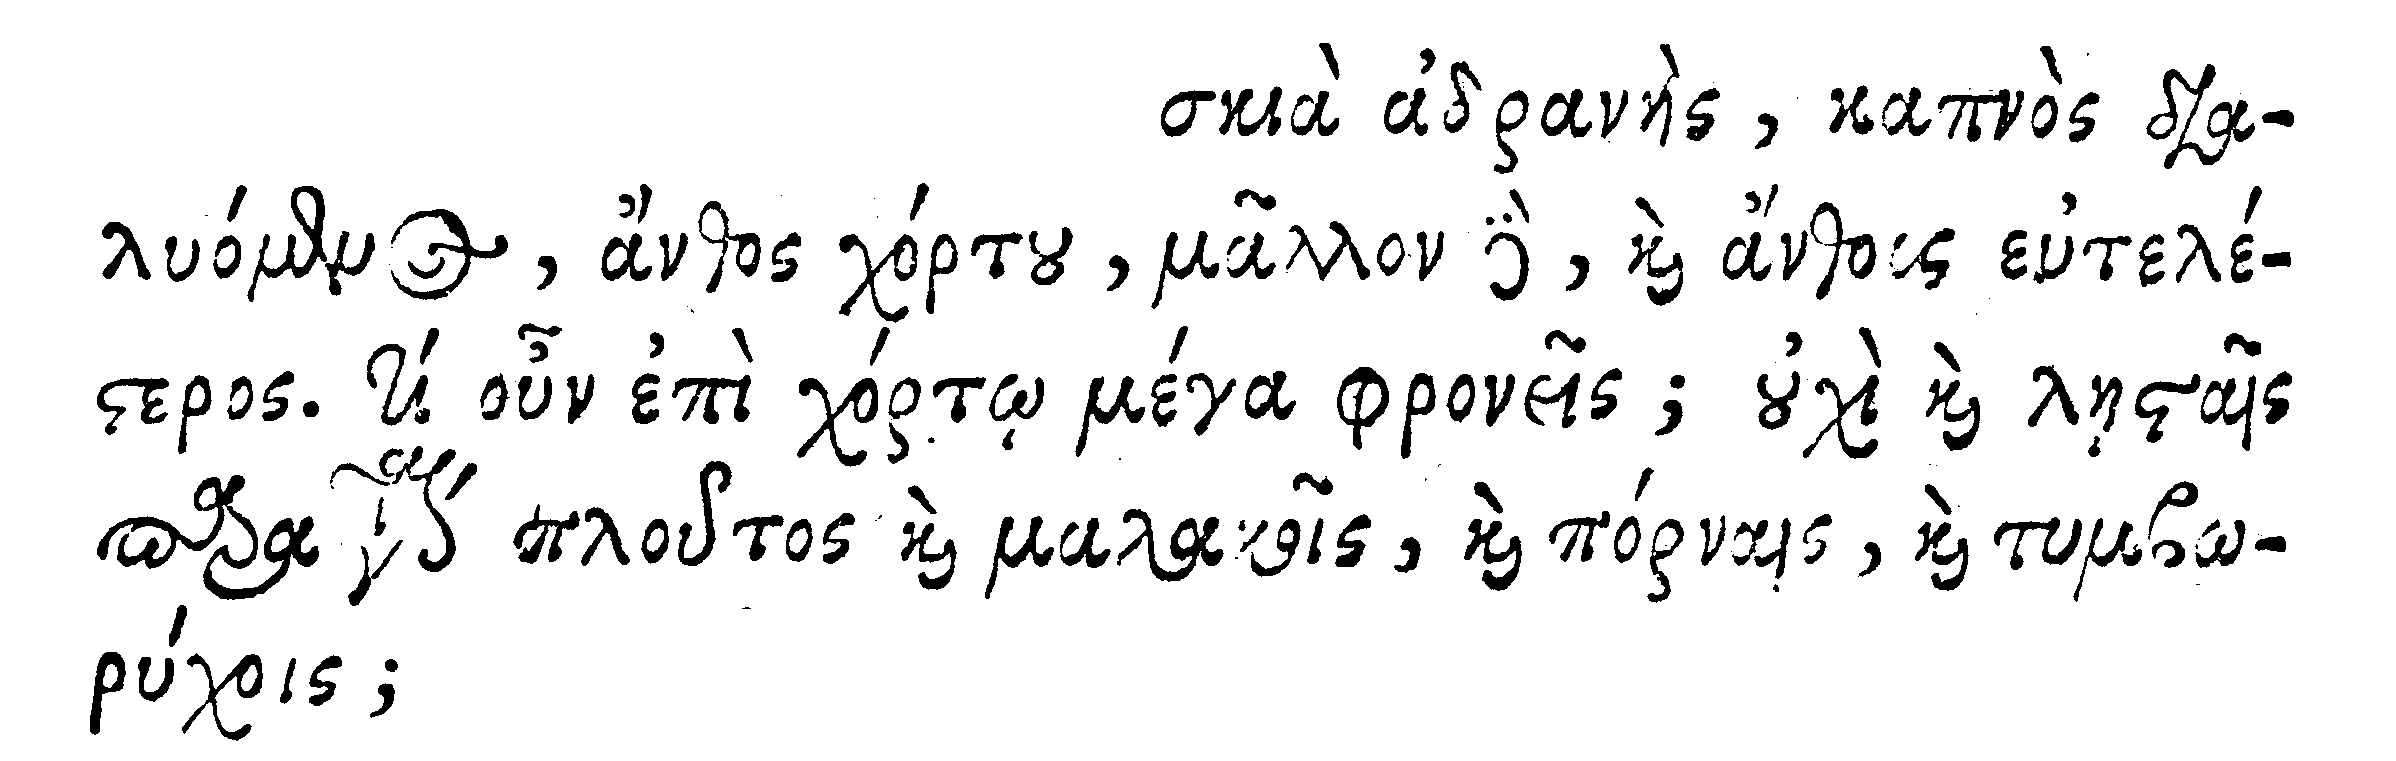 σκιὰ ἀδρανὴς, καπνὸς δια-
λυόμενος, ἄνθος χόρτου, μᾶλλον δὲ, καὶ ἄνθοις εὐτελέ-
στερος. τί οὖν ἐπὶ χόρτῳ μέγα φρονεῖς; οὐχὶ καὶ λῃσταῖς
πλοῦτος καὶ μαλακοῖς, καὶ πόρναις, καὶ τυμβω-
ρύχοις;